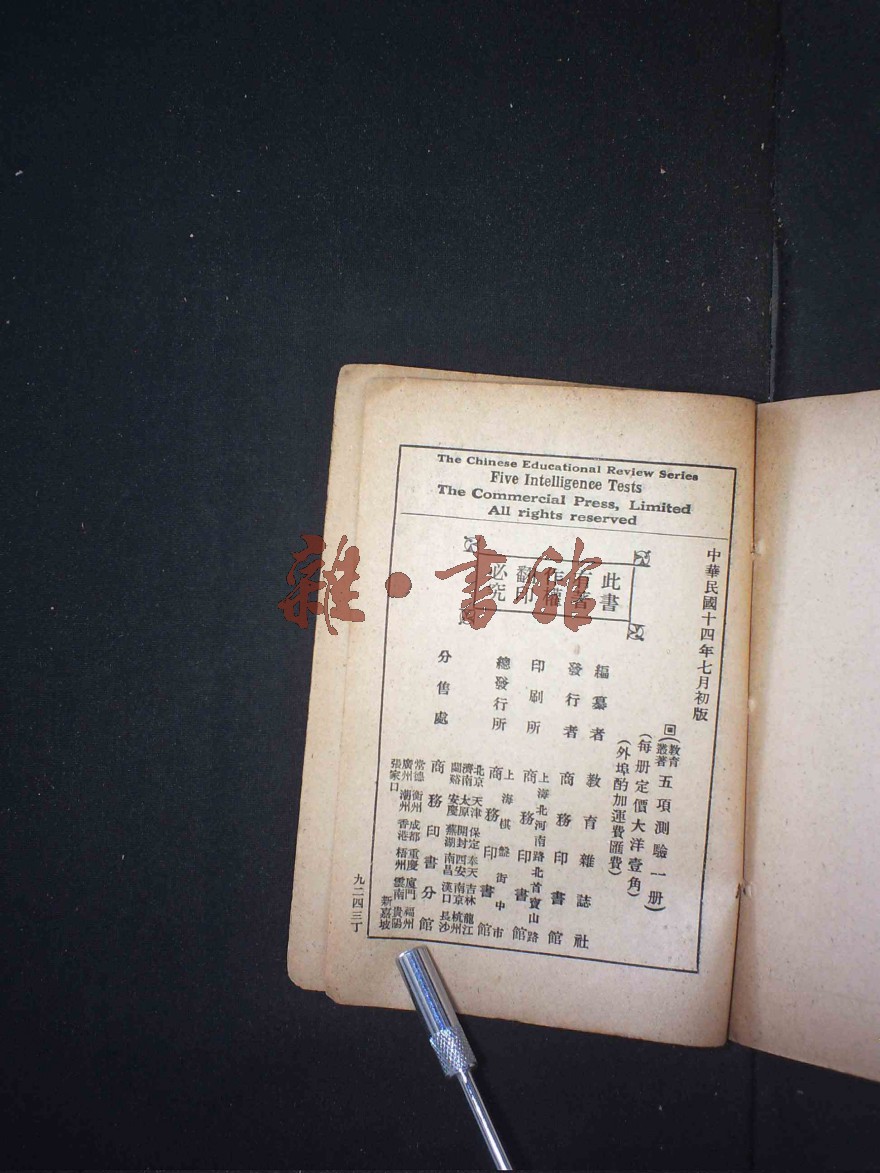 The Chinese Educational Review Series
Five Intelligence Tests
The Commercial Press, Limited
All rights reserved
中華民國十四年七月初版
此書
有著
作權
翻印
必究
回(教育叢著五項測驗一册)
(每册定價大洋壹角)
(外埠酌加運費匯費)
編纂者 教育雜誌社
發行者 商務印書館
印刷所 上海北河南路北首寶山路
商務印書館
總發行所 上海棋盤街中市
商務印書館
分售處 北京 天津 保定 奉天 吉林 龍江
濟南 太原 開封 西安 南京 杭州
蘭谿 安慶 蕪湖 南昌 漢口 長沙
商務印書分館
常德 衡州 成都 重慶 廈門 福州
廣州 潮州 香港 梧州 雲南 貴陽
張家口 新嘉坡
九二四三丁
雜·書館